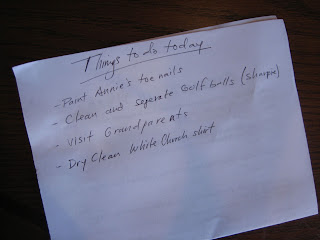 Things to do today
- Paint Annie's toe nails
- Clean and seperate Golf balls (sharpie)
- Visit Grandparents
- Dry Clean White Church shirt